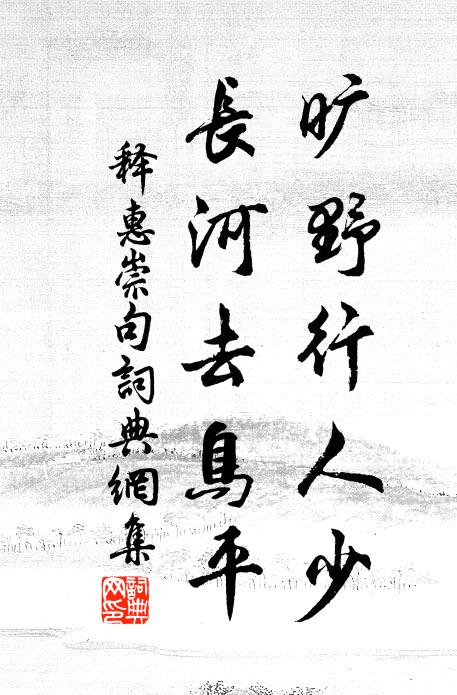 旷野行人少
長河去鳥平
释惠崇句詞典網集
詞典网印